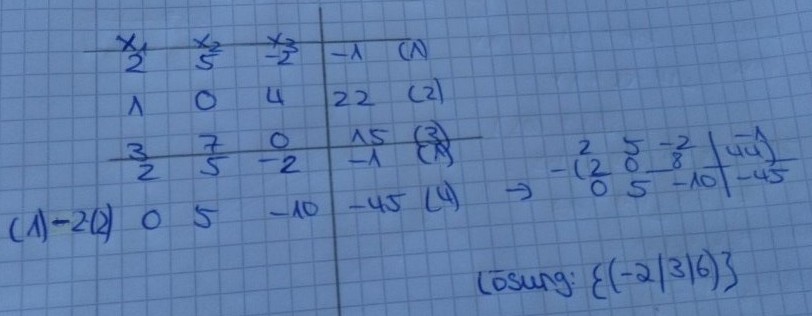 x₁ x₂ x₃
2 5 -2 | -1 (1)
1 0 4 | 22 (2)
3 7 0 | 15 (3)
2 5 -2 | -1 (1)
(1)-2(2) 0 5 -10 | -45 (4)
→ 2 5 -2 | -1
-(2 0 8 | 44)
0 5 -10 | -45
Lösung: {(-2|3|6)}